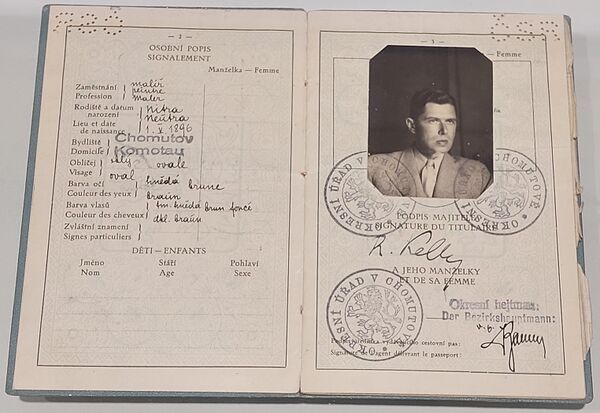 — 2 —
OSOBNÍ POPIS
SIGNALEMENT
Manželka – Femme
Zaměstnání malíř
peintre
Profession Maler
Rodiště a datum narození Nitra
Lieu et date de naissance Neutra
1. V. 1896
Bydliště Chomutov
Domicile Komotau
Obličej ovale
Visage oval
Barva očí hnědá brune
Couleur des yeux braun
Barva vlasů tm. hnědá brun foncé
Couleur des cheveux dkl. braun
Zvláštní znamení
Signes particuliers
DĚTI – ENFANTS
Jméno Stáří Pohlaví
Nom Age Sexe
— 3 —
Femme
OKRESNÍ ÚŘAD V CHOMUTOVĚ
OKRESNÍ ÚŘAD V CHOMUTOVĚ
PODPIS MAJITELE
SIGNATURE DU TITULAIRE
A JEHO MANŽELKY
ET DE SA FEMME
OKRESNÍ ÚŘAD V CHOMUTOVĚ
Okresní hejtman:
Der Bezirkshauptmann:
cestovní pas:
Signature de l'agent délivrant le passeport: